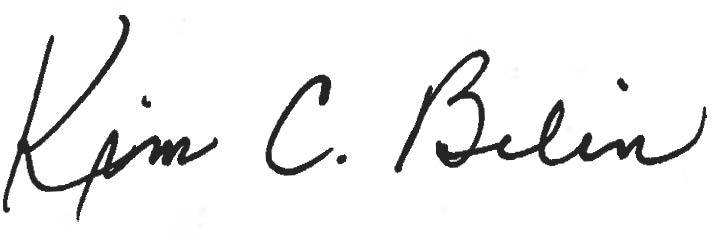 Kim C. Belin